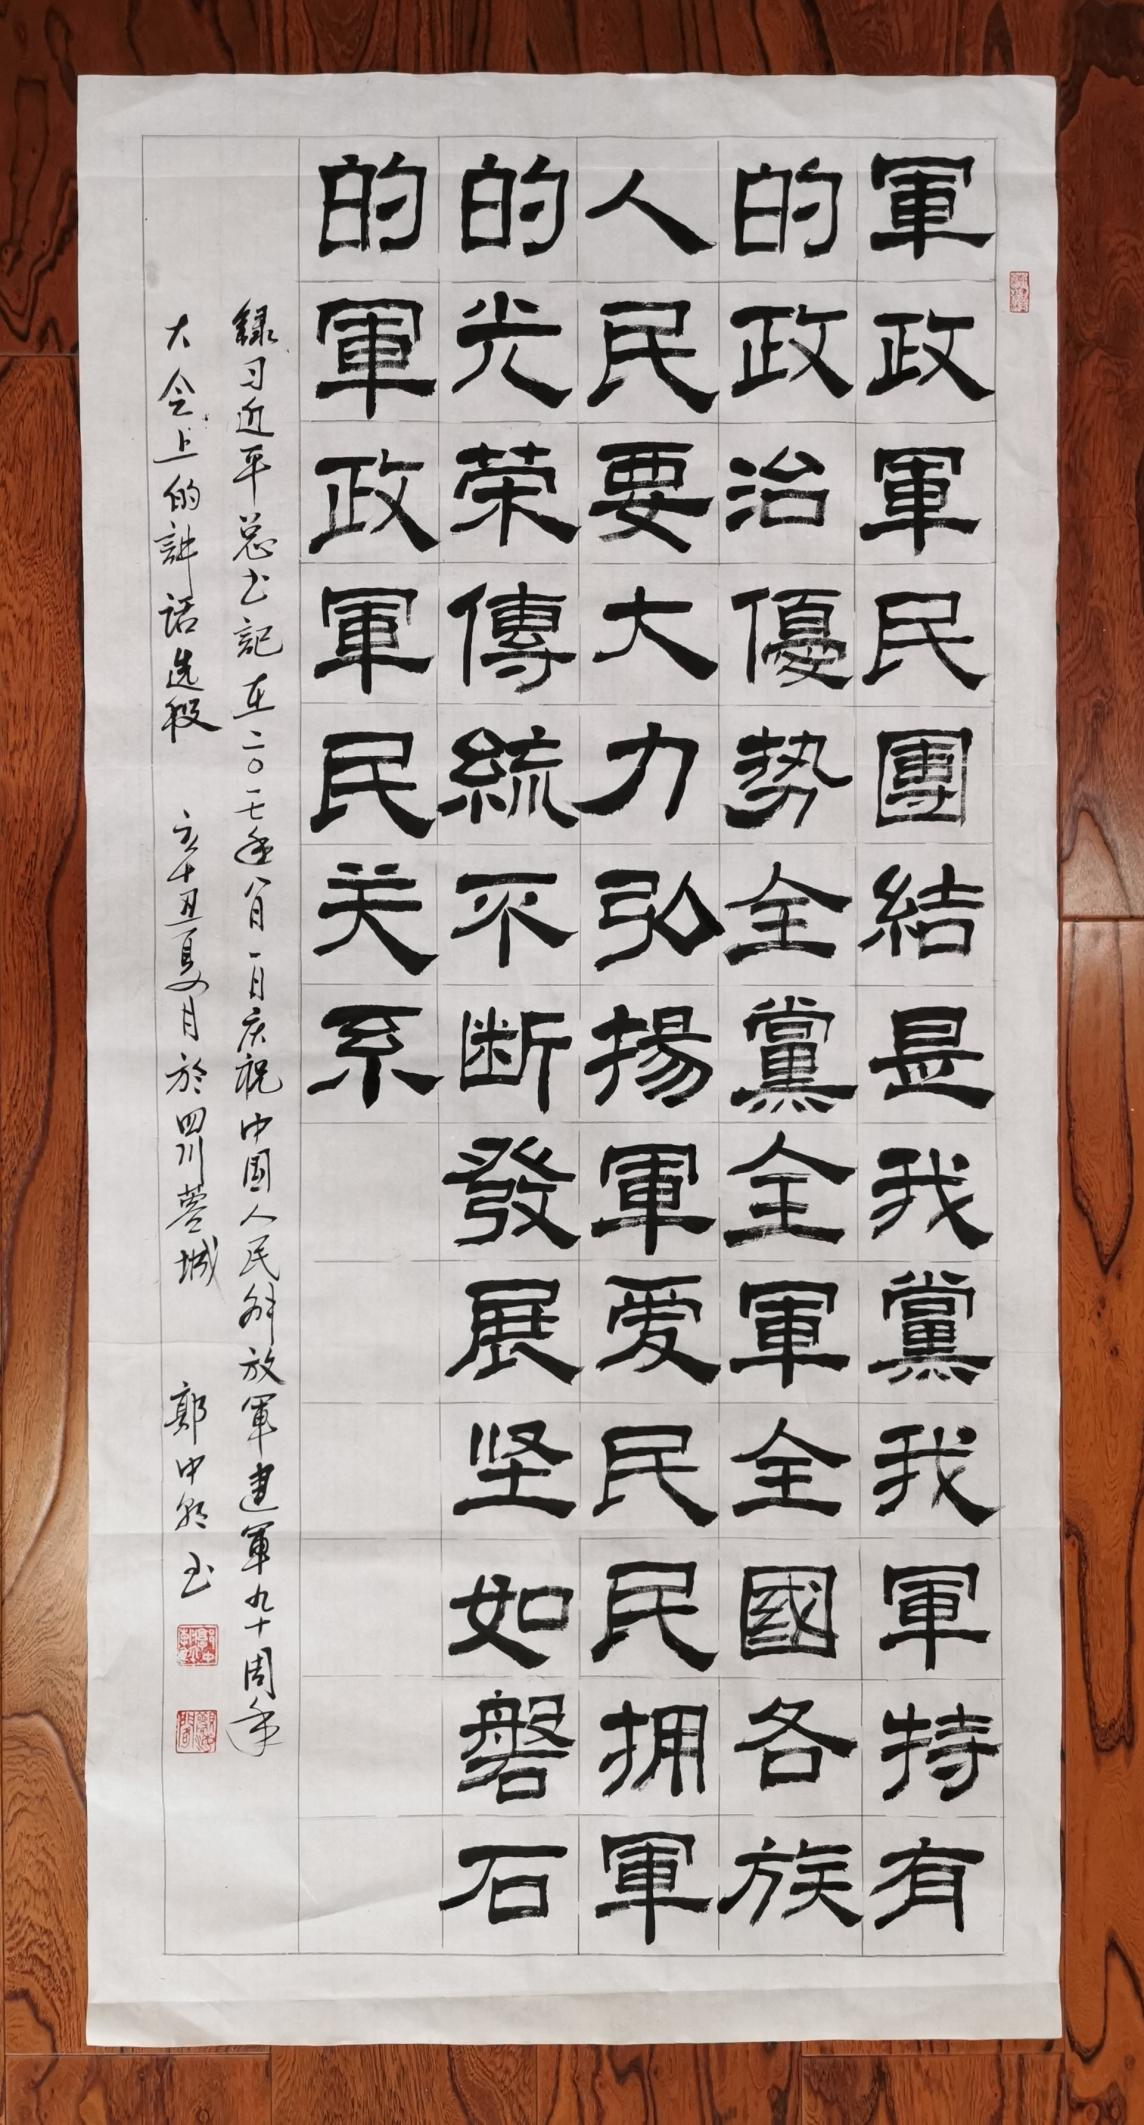 軍政軍民團結是我黨我軍特有
的政治優勢全黨全軍全國各族
人民要大力弘揚軍爱民民拥軍
的光荣傳統不断發展坚如磐石
的軍政軍民关系
録习近平总书記在二〇一七年八月一日庆祝中国人民解放軍建軍九十周年
大会上的講话选段 辛丑夏月於四川蓉城 郭中 书